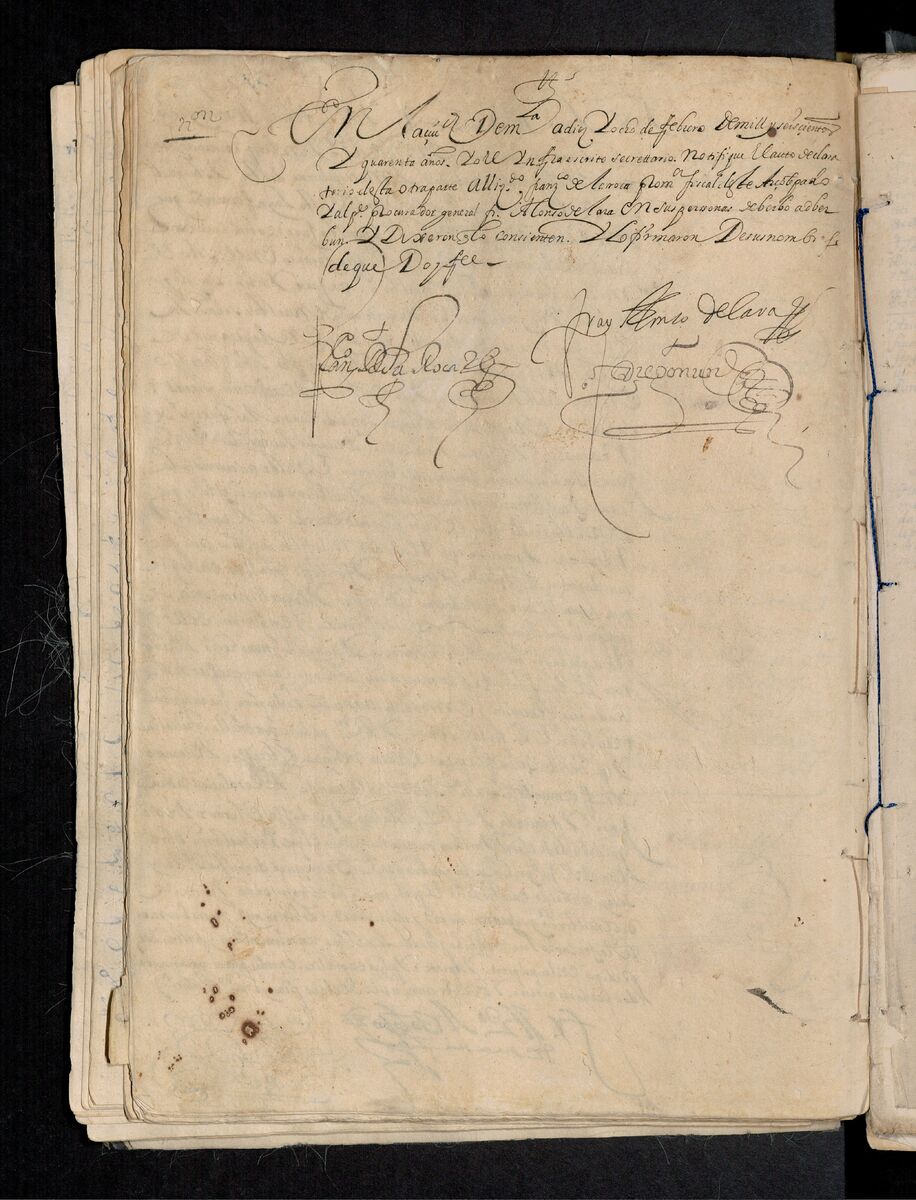 non
En la çiud de mla a diez y ocho de febrero de mill y seiscientos
y quarenta años. yo el ynfraescrito secrettario. notifique el auto declara
torio desta otra parte al liçdo franco de la roca promr fiscal deste Arcobpado
y al pe procurador general fr. Alonso de lara en sus personas de berbo ad ber
bun. y dixeron q lo consienten. y lo firmaron de sus nombres
de que doy fee
fray Alonso de lara
franco de la Roca